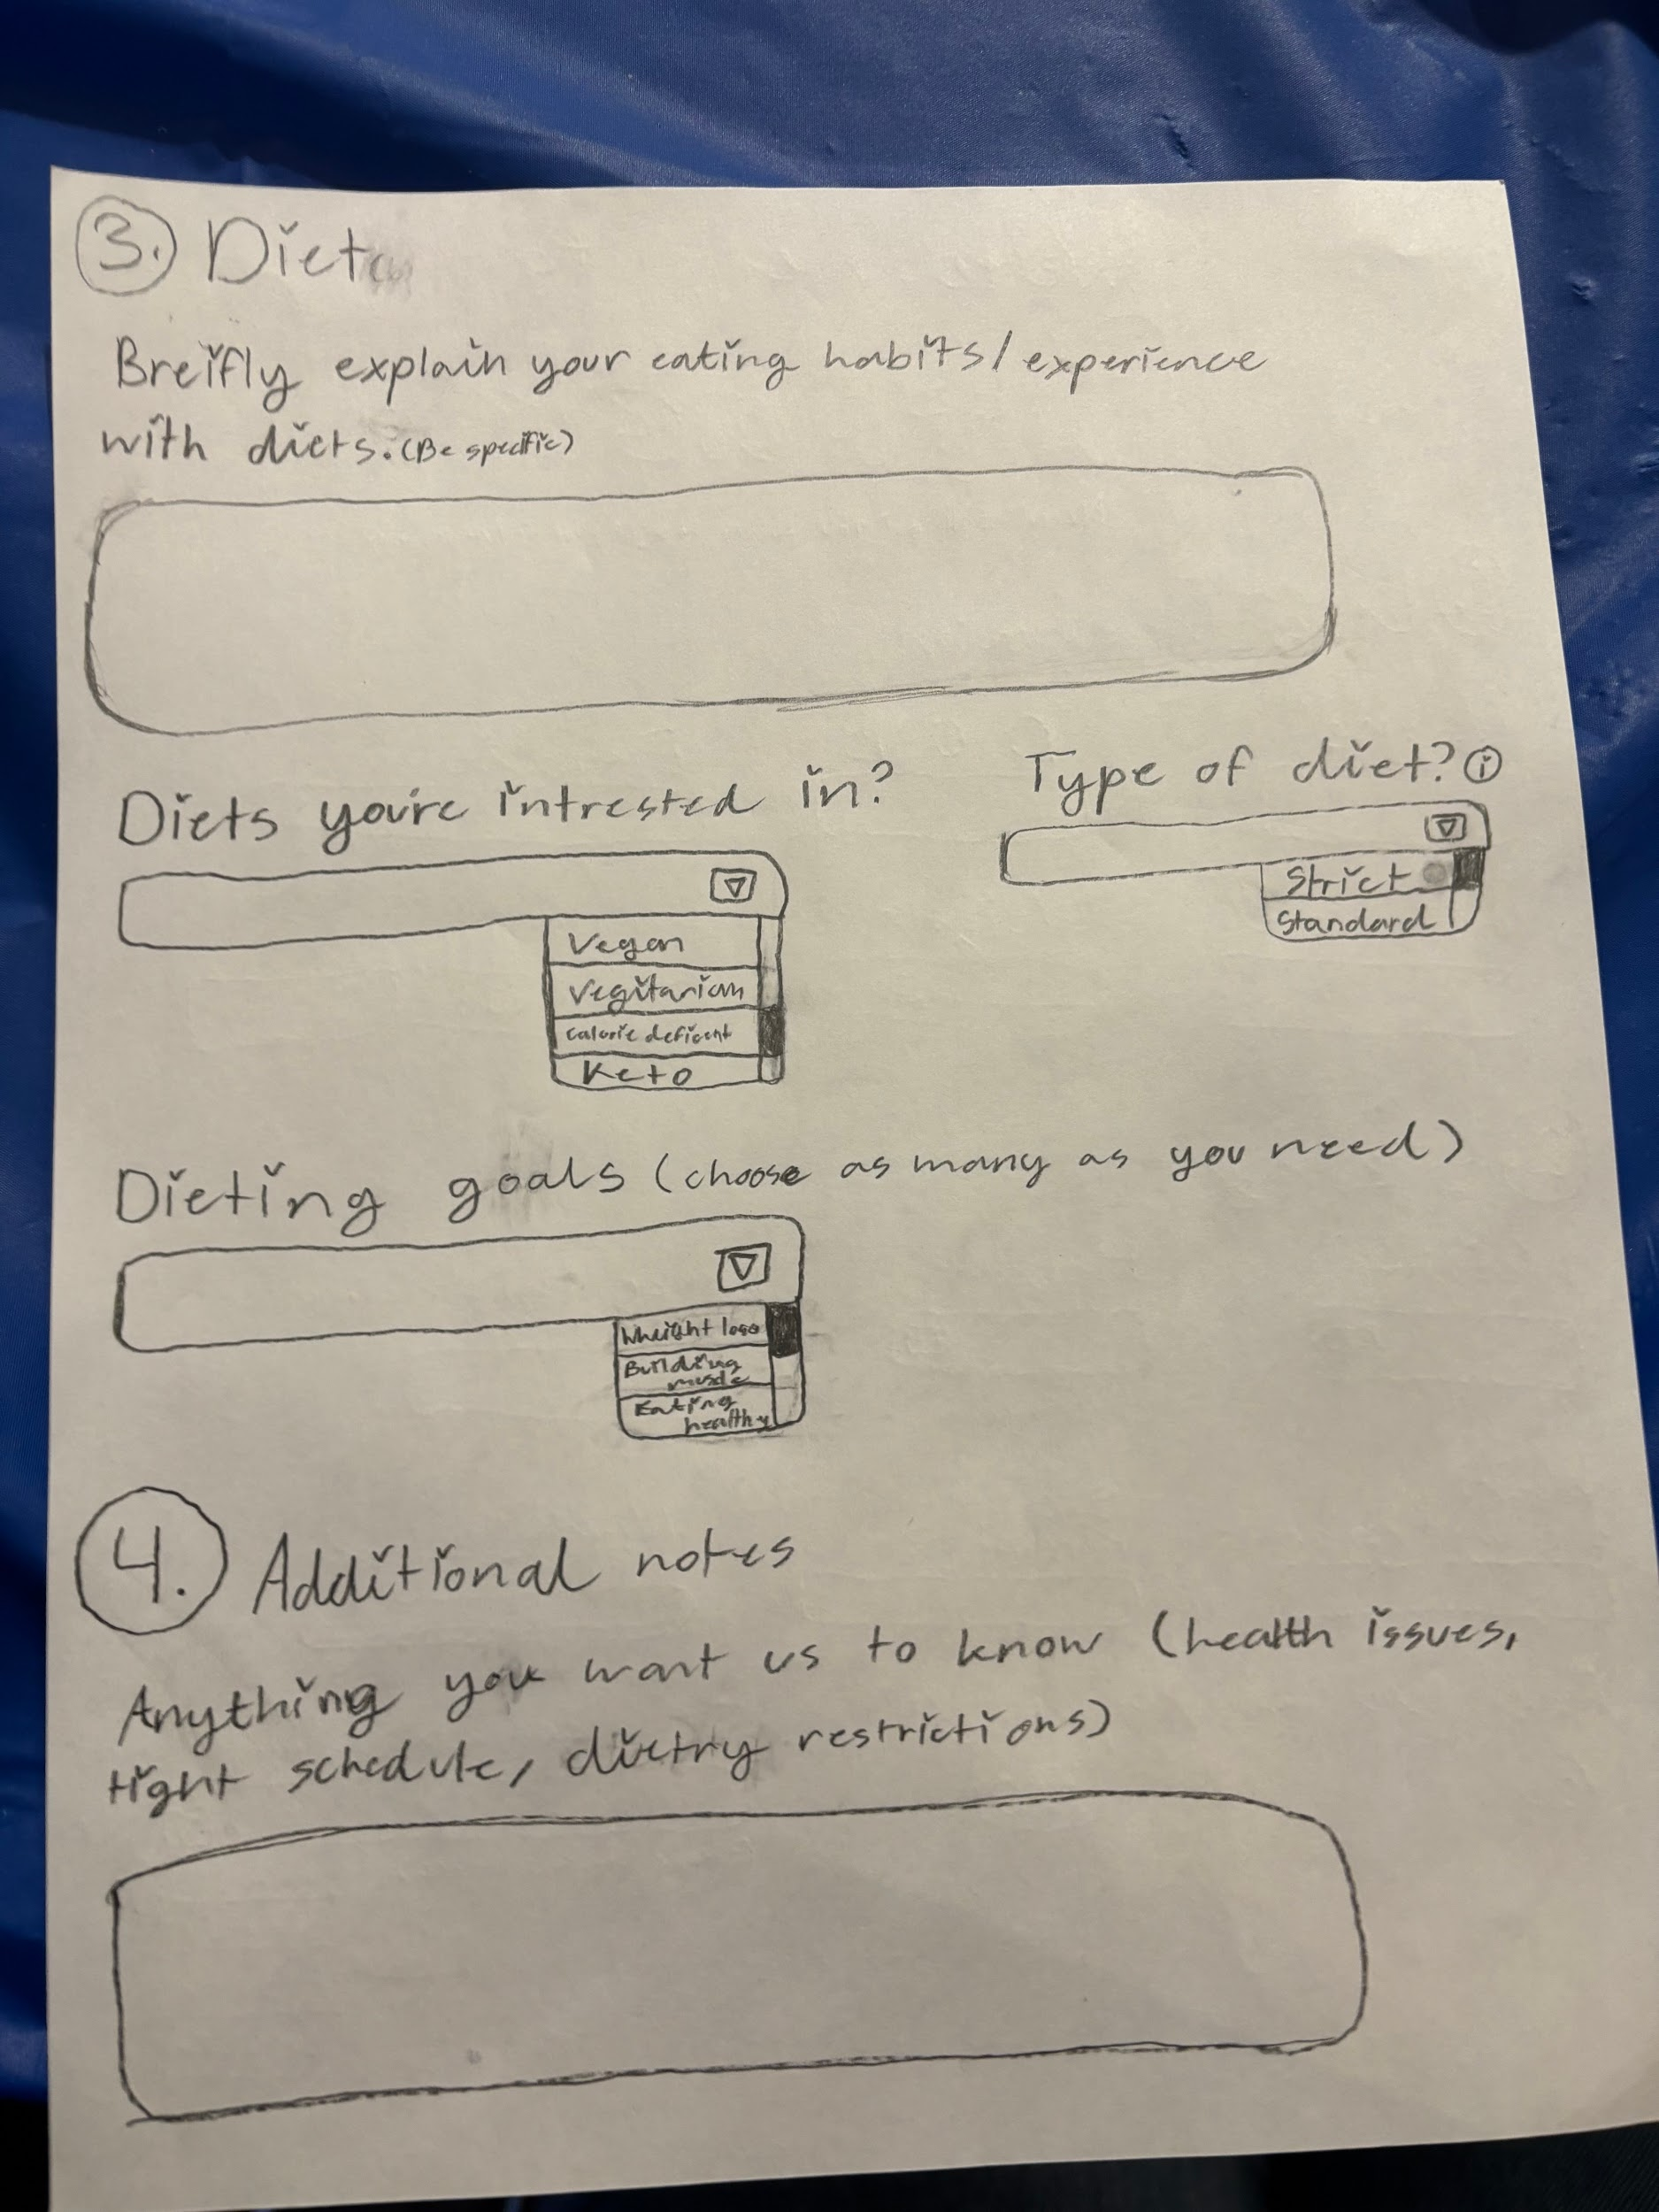 3. Diet
Breifly explain your eating habits/experience
with diets. (Be specific)
Diets you're intrested in?
Type of diet? i
Strict
Standard
Vegan
Vegitarian
calorie deficent
Keto
Dieting goals (choose as many as you need)
Wheight loss
Building
muscle
Eating
healthy
4. Additional notes
Anything you want us to know (health issues,
tight schedule, dietry restrictions)